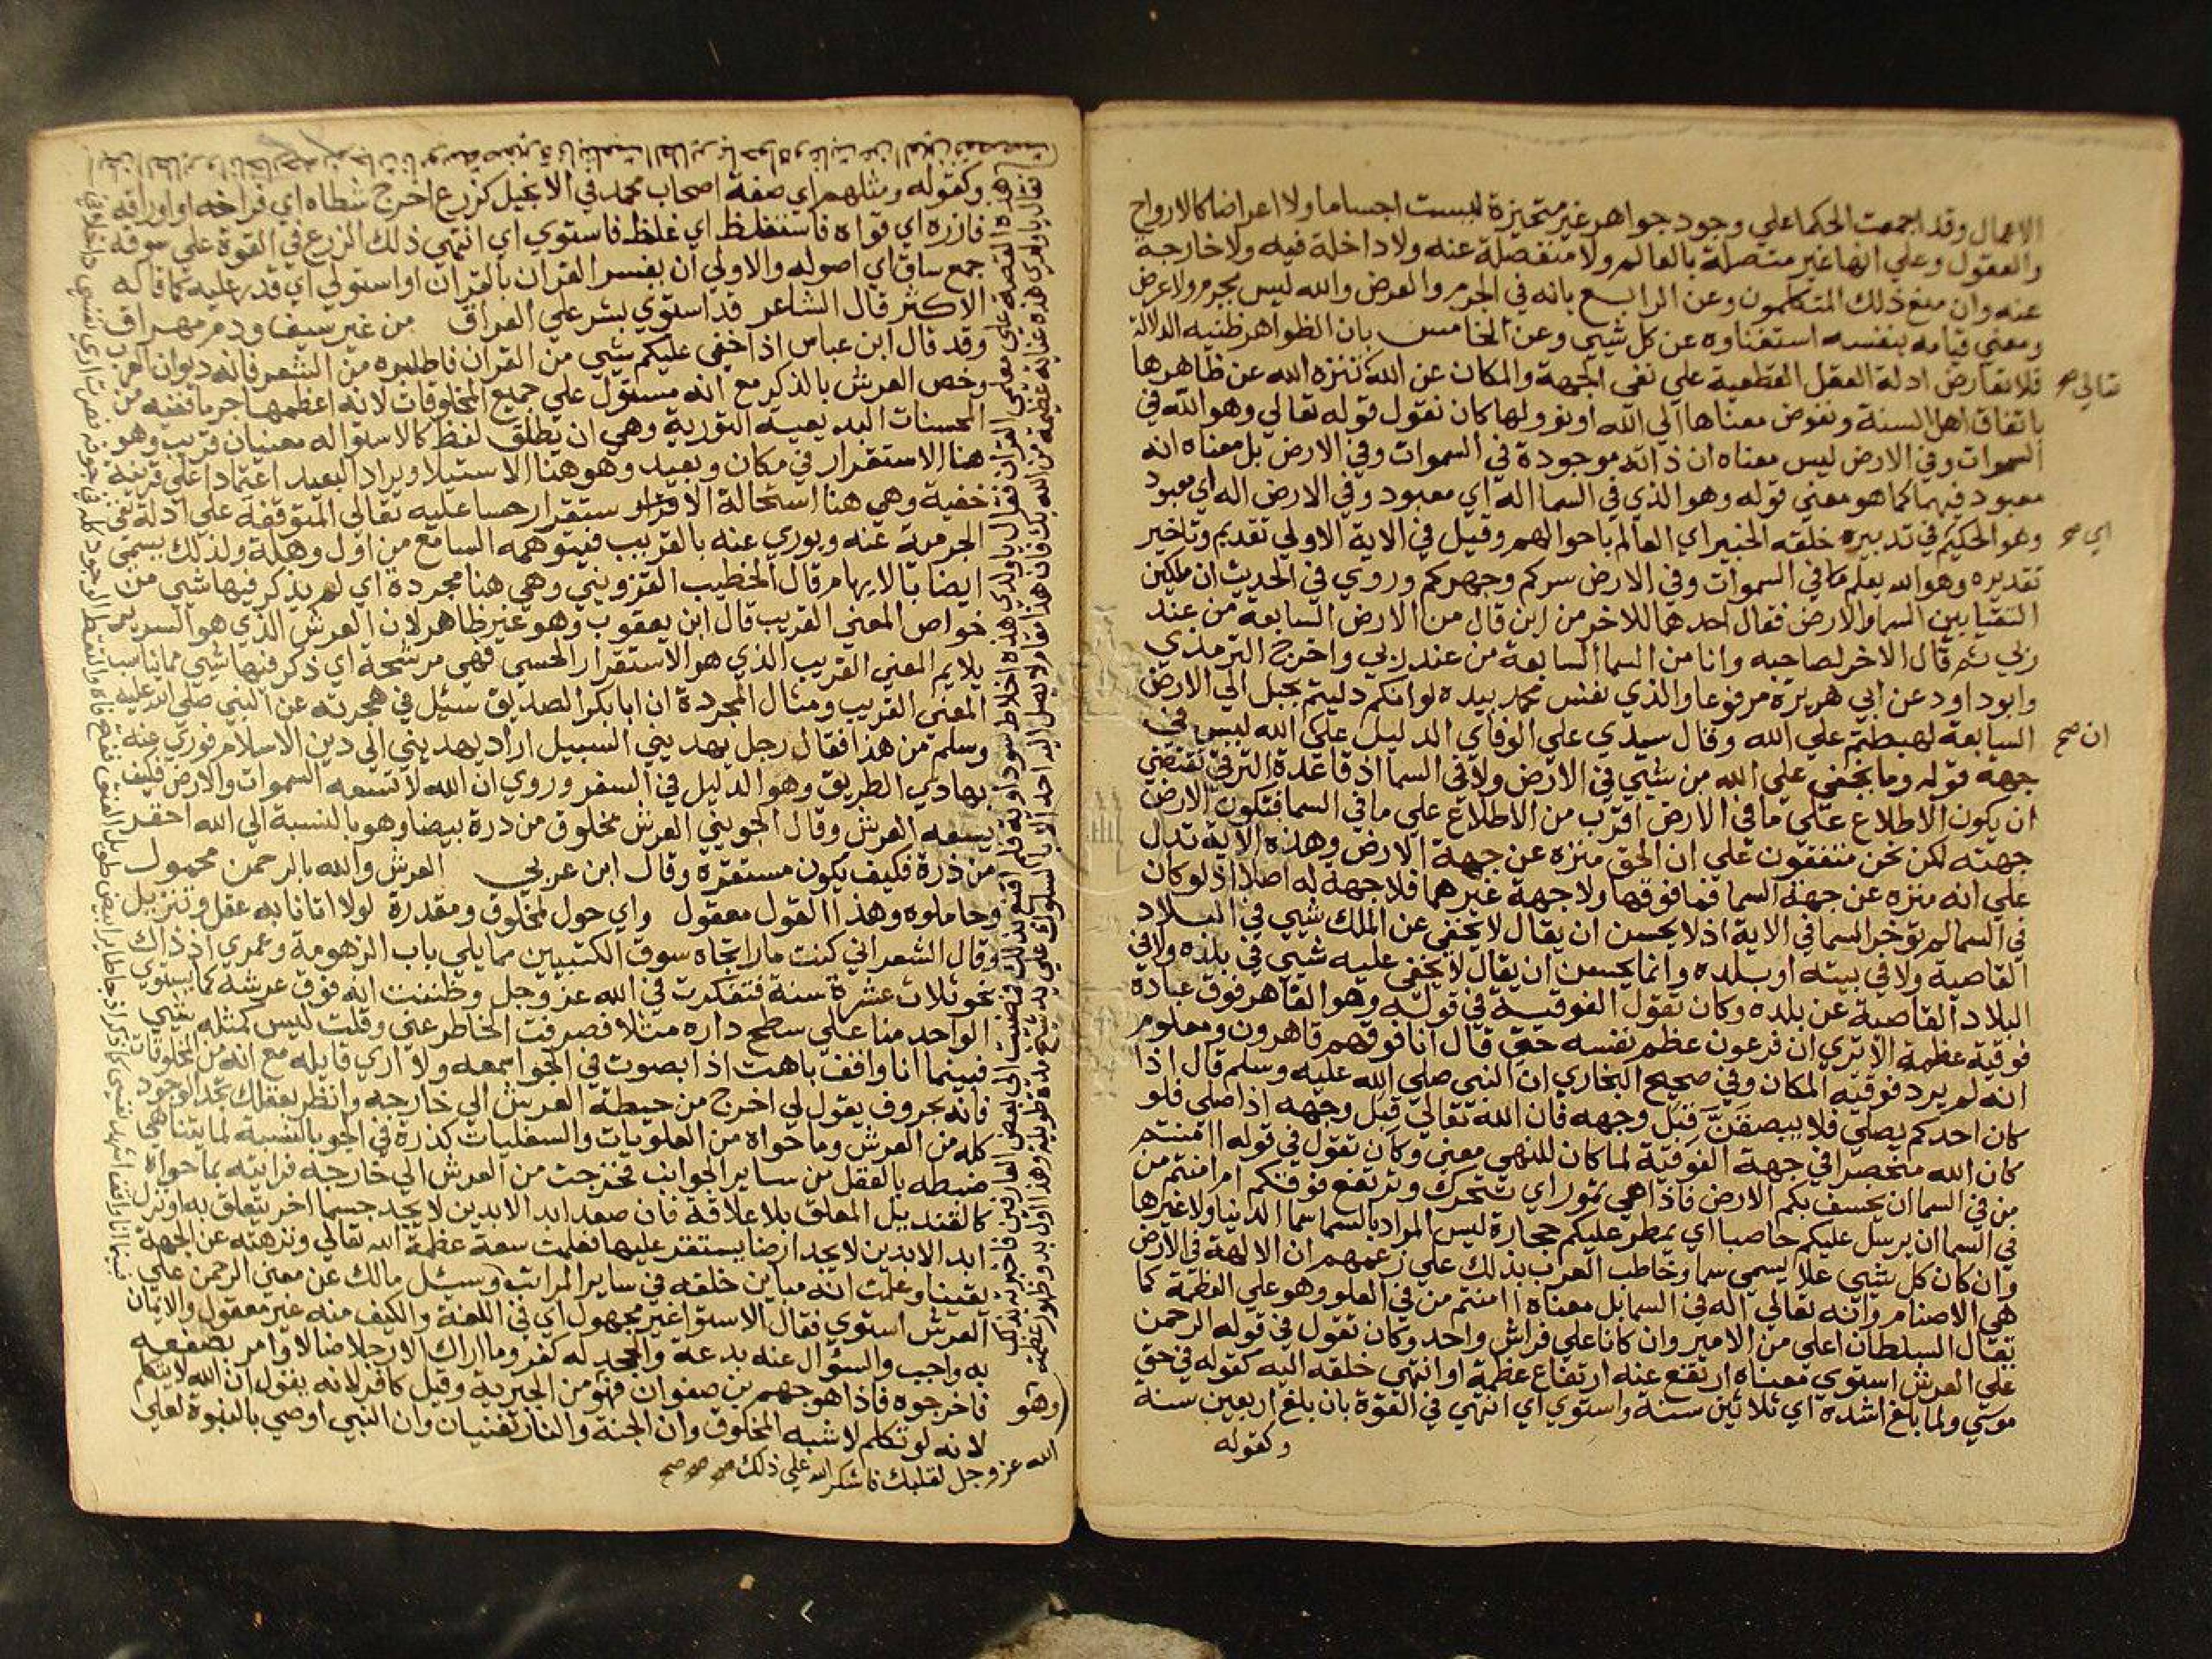 الاعمال وقد اجمعت الحكما علي وجود جواهر غير متحيزة ليست اجساما ولا اعراضا كالارواح
والعقول وعلي انها غير متصلة بالعالم ولا منفصلة عنه ولا داخلة فيه ولا خارجة
عنه وان منع ذلك المتكلمون وعن الرابع بانه في الجرم والعرض والله ليس بجرم ولا عرض
ومعني قيامه بنفسه استغناوه عن كل شيي وعن الخامس بان الظواهر ظنيه الدلالة
فلا تعارض ادلة العقل القطعية علي نفي الجهة والمكان عن الله تننزه الله عن ظاهرها
تعالي صح
باتفاق اهل السنة ونفوض معناها الي الله او نوولها كان نقول قوله تعالي وهو الله في
السموات وفي الارض ليس معناه ان ذاته موجودة في السموات وفي الارض بل معناه انه
معبود فيهما كما هو معني قوله وهو الذي في السما اله اي معبود وفي الارض اله اي معبود
وهو الحكيم في تدبيره خلقه الخبير اي العالم باحوالهم وقيل في الاية الاولي تقديم وتاخير
اي صح
تقديره وهو الله يعلم ما في السموات وفي الارض سركم وجهركم وروي في الحديث ان ملكين
التقيا بين السما والارض فقال احدهما للاخر من اين قال من الارض السابعة من عند
ربي ثم قال الاخر لصاحبه وانا من السما السابعة من عند ربي واخرج الترمذي
وابو داود عن ابي هريرة مرفوعا والذي نفس محمد بيده لو انكم دليتم بحبل الي الارض
السابعة لهبطتم علي الله وقال سيدي علي الوفاي الدليل علي الله ليس في
ان صح
جهة قوله وما يخفي علي الله من شيي في الارض ولا في السما اذ قاعدة الترقي تقتضي
ان يكون الاطلاع علي ما في الارض اقرب من الاطلاع علي ما في السما فتكون الارض
جهته لكن نحن متفقون علي ان الحق منزه عن جهة الارض وهذه الاية تدل
علي انه منزه عن جهة السما فما فوقها ولا جهة غيرهما فلا جهة له اصلا اذ لو كان
في السما لم توخر السما في الاية اذ لا يحسن ان يقال لا يخفي عن الملك شيي في البلاد
القاصية ولا في بيته او بلده وانما يحسن ان يقال لا يخفي عليه شيي في بلده ولا في
البلاد القاصية عن بلده وكان نقول الفوقية في قوله وهو القاهر فوق عباده
فوقية عظمة الا تري ان فرعون عظم نفسه حتي قال انا فوقهم قاهرون ومعلوم
انه لم يرد فوقية المكان وفي صحيح البخاري ان النبي صلي الله عليه وسلم قال اذا
كان احدكم يصلي فلا يبصقن قبل وجهه فان الله تعالي قبل وجهه اذا صلي فلو
كان الله منحصرا في جهة الفوقية لما كان للنهي معني وكان نقول في قوله اامنتم
من في السما ان يخسف بكم الارض فاذا هي تمور اي تتحرك وترتفع فوقكم ام امنتم من
في السما ان يرسل عليكم حاصبا اي يمطر عليكم حجارة ليس المراد بالسما سما الدنيا ولا غيرها
وان كان كل شيي علا يسمي سما وخاطب العرب بذلك علي زعمهم ان الالهة في الارض
هي الاصنام وانه تعالي اله في السما بل معناه اامنتم من في العلو وهو علي العظمة كما
يقال السلطان اعلي من الامير وان كانا علي فراش واحد وكان نقول في قوله الرحمن
علي العرش استوي معناه ارتفع عنه ارتفاع عظمة او انتهي خلقه اليه كقوله في حق
موسي ولما بلغ اشده اي ثلاثين سنة واستوي اي انتهي في القوة بان بلغ اربعين سنة
وكقوله
وكقوله ومثلهم اي صفة اصحاب محمد في الانجيل كزرع اخرج شطاه اي فراخه او اوراقه
فازره اي قواه فاستغلظ اي غلظ فاستوي اي انتهي ذلك الزرع في القوة علي سوقه
جمع ساق اي اصوله والاولي ان يفسر القران بالقران او استولي اي قدر عليه كما قاله
الاكثر قال الشاعر قد استوي بشر علي العراق من غير سيف ودم مهراق
وقد قال ابن عباس اذا خفي عليكم شيي من القران فاطلبوه من الشعر فانه ديوان العرب
وخص العرش بالذكر مع انه مستول علي جميع المخلوقات لانه اعظمها جرما ففيه من
المحسنات البديعية التورية وهي ان يطلق لفظ كالاستوا له معنيان قريب وهو
هنا الاستقرار في مكان وبعيد وهو هنا الاستيلا ويراد البعيد اعتمادا علي قرينة
خفية وهي هنا استحالة الاستقرار حسا عليه تعالي المتوقفة علي ادلة نفي
الجرمية عنه ويوري عنه بالقريب فيتوهمه السامع من اول وهلة ولذلك يسمي
ايضا بالايهام قال الخطيب القزويني وهي هنا مجردة اي لم يذكر فيها شيي من
خواص المعني القريب قال ابن يعقوب وهو غير ظاهر لان العرش الذي هو السرير
يلايم المعني القريب الذي هو الاستقرار الحسي فهي مرشحة اي ذكر فيها شيي مما يناسب
المعني القريب ومثال المجردة ان ابا بكر الصديق سئل في هجرته عن النبي صلي الله عليه
وسلم من هذا فقال رجل يهديني السبيل اراد يهديني الي دين الاسلام فوري عنه
بهادي الطريق وهو الدليل في السفر وروي ان الله لا تسعه السموات والارض فكيف
يسعه العرش وقال الجويني العرش مخلوق من درة بيضا وهو بالنسبة الي الله احقر
من ذرة فكيف يكون مستقره وقال ابن عربي العرش والله بالرحمن محمول
وحاملوه وهذا القول معقول واي حول لمخلوق ومقدرة لولا اتانا به عقل وتنزيل
وقال الشعراني كنت مارا تجاه سوق الكتبيين مما يلي باب الزهومة وعمري اذ ذاك
نحو ثلاث عشرة سنة فتفكرت في الله عز وجل وظننت انه فوق عرشه كما يستوي
الواحد منا علي سطح داره مثلا فصرفت الخاطر عني وقلت ليس كمثله شيي
فبينما انا واقف باهت اذا بصوت في الجو اسمعه ولا اري قايله مع انه من المخلوقات
فانه بحروف يقول لي اخرج من حيطة العرش الي خارجه وانظر بعقلك تجد الوجود
كله من العرش وما حواه من العلويات والسفليات كذرة في الجو بالنسبة لما يتناهي
ضبطه بالعقل من ساير الجوانب فخرجت من العرش الي خارجه فرايته بما حواه
كالقنديل المعلق بلا علاقة فان صعد ابد الابدين لا يجد جسما اخر يتعلق به او نزل
ابد الابدين لا يجد ارضا يستقر عليها فعلمت سعة عظمة الله تعالي ونزهته عن الجهة
يقينا وعلمت انه مباين خلقه في ساير المراتب وسئل مالك عن معني الرحمن علي
العرش استوي فقال الاستوا غير مجهول اي في اللغة والكيف منه غير معقول والايمان
به واجب والسؤال عنه بدعة والجحد له كفر وما اراك الا رجلا ضالا وامر بصفعه
فاخرجوه فاذا هو جهم بن صفوان فهو من الجبرية وقيل كافر لانه يقول ان الله لا يتكلم
لانه لو تكلم لاشبه المخلوق وان الجنة والنار تفنيان وان النبي اوصي بالنبوة لعلي
وهو
الله عز وجل لقلبك فاشكر الله علي ذلك صح صح صح